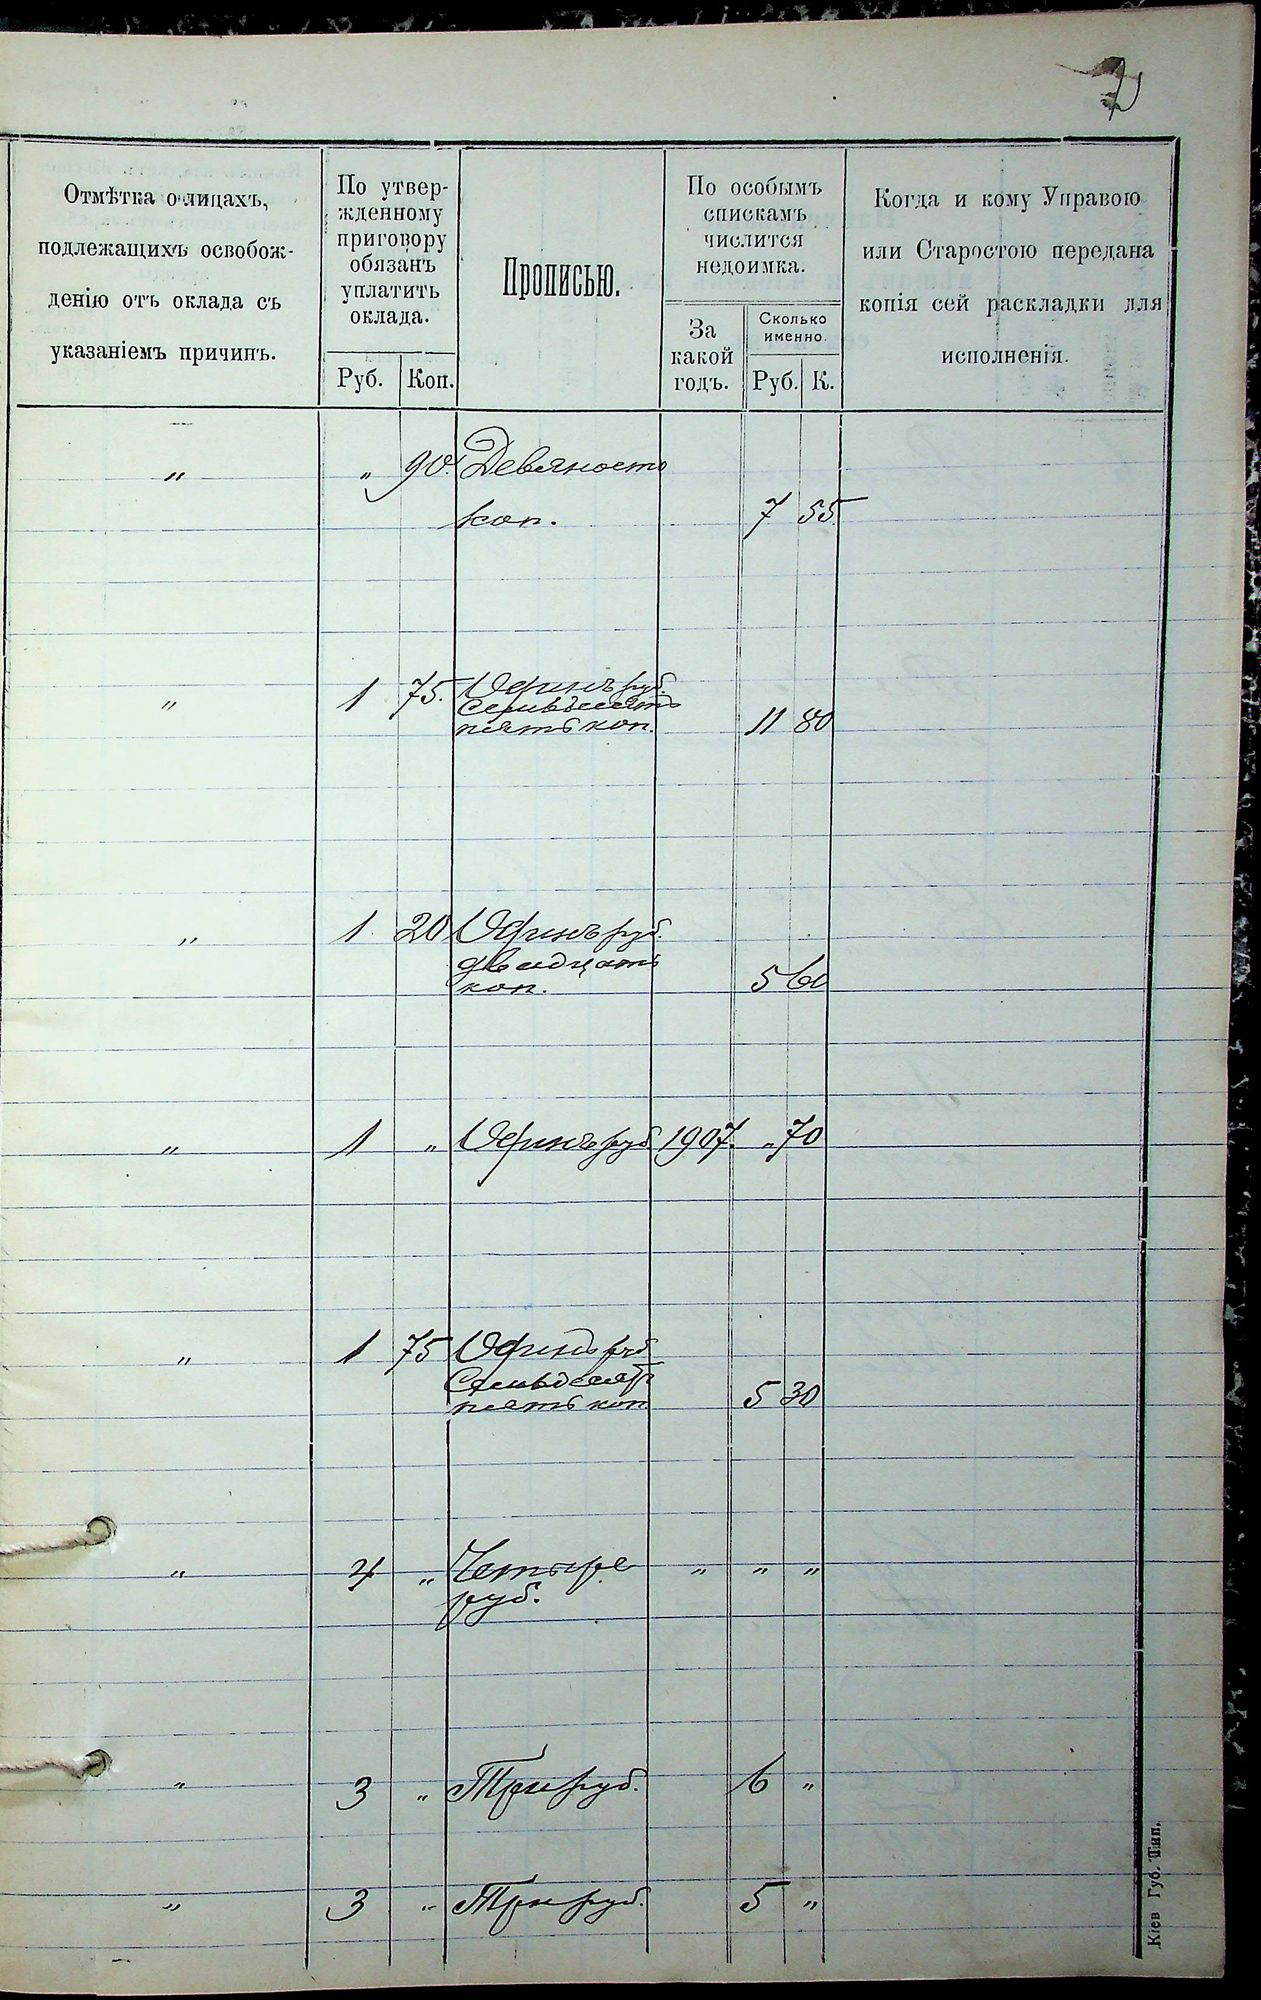 Отмѣтка о лицахъ,
подлежащихъ освобож-
денію отъ оклада съ
указаніемъ причинъ.
По утвер-
жденному
приговору
обязанъ
уплатить
оклада.
Руб. Коп.
Прописью.
По особымъ
спискамъ
числится
недоимка.
За
какой
годъ.
Сколько
именно.
Руб. К.
Когда и кому Управою
или Старостою передана
копія сей раскладки для
исполненія.
" " 90. Девяносто
коп. 7 55
" 1 75. Одинъ руб.
семьдесятъ
пять коп. 11 80
" 1 20 Одинъ руб.
двадцать
коп. 5 60
" 1 " Одинъ руб. 1907. " 70
" 1 75 Одинъ руб
семьдесят
пять коп. 5 30
" 4 " Четыре " " "
руб.
" 3 " Три руб. 6 "
" 3 " Три руб. 5 "
Кіев Губ. Тип.